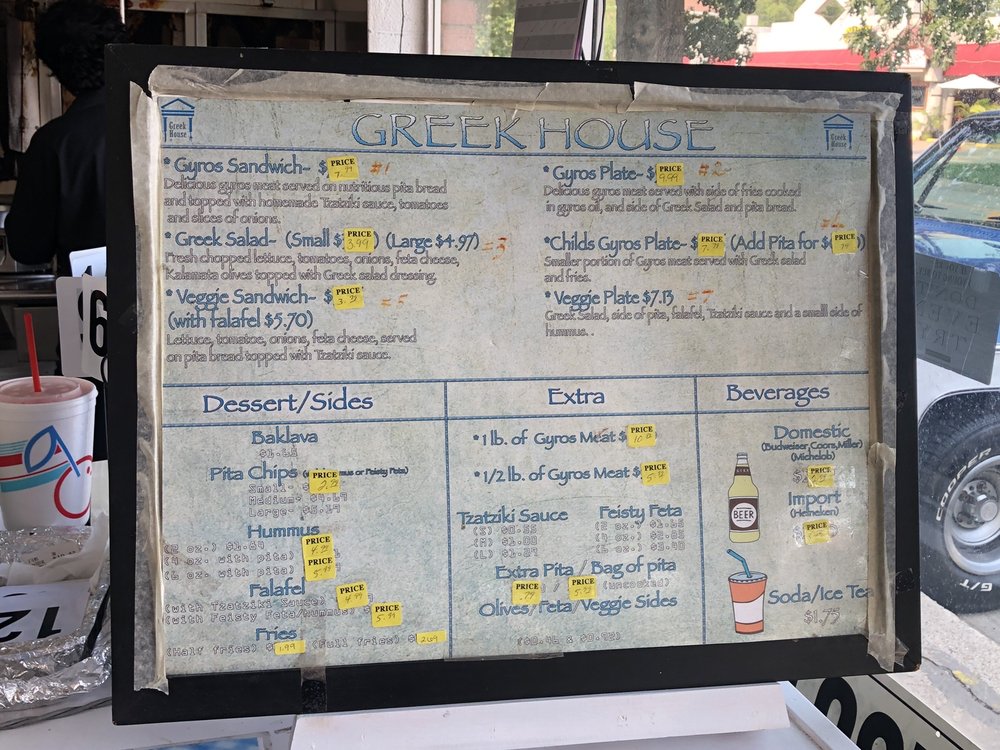 GREEK HOUSE
Greek House
Greek House
* Gyros Sandwich~ $ PRICE 7.99 #1
Delicious gyros meat served on nutritious pita bread
and topped with homemade Tzatziki sauce, tomatoes
and slices of onions.
* Greek Salad~ (Small $ PRICE 3.99) (Large $4.97)
Fresh chopped lettuce, tomatoes, onions, feta cheese,
Kalamata olives topped with Greek salad dressing.
* Veggie Sandwich~ $ PRICE #5
(with falafel $5.70)
Lettuce, tomatoe, onions, feta cheese, served
on pita bread topped with Tzatziki sauce.
* Gyros Plate~ $ PRICE 9.99 #2
Delicious gyros meat served with side of fries cooked
in gyros oil, and side of Greek Salad and pita bread.
*Childs Gyros Plate~ $ PRICE (Add Pita for $ PRICE )
Smaller portion of Gyros meat served with Greek salad
and fries.
* Veggie Plate $7.13
Greek Salad, side of pita, falafel, Tzatziki sauce and a small side of
hummus. .
Dessert/Sides
Baklava
Pita Chips
PRICE
Small-
Medium-
Large-
Hummus
(2 oz.)
(4 oz. with pita) PRICE
(6 oz. with pita) PRICE
Falafel
(with Tzatziki Sauce) PRICE 4.99
(with Feisty Feta/hummus) PRICE
Fries
(Half fries) $ 1.99 (Full fries) $ 2.69
Extra
*1 lb. of Gyros Meat $ PRICE
*1/2 lb. of Gyros Meat $ PRICE
Tzatziki Sauce
(S)
(M) $1.00
(L)
Feisty Feta
(2 oz.)
(4 oz.)
(6 oz.)
Extra Pita / Bag of pita
PRICE .79 PRICE (uncooked)
Olives/Feta/Veggie Sides
Beverages
Domestic
(Budweiser,Coors,Miller)
(Michelob)
PRICE
Import
(Heineken)
PRICE
BEER
Soda/Ice Tea
$1.75
COOPER
G/T
96
12